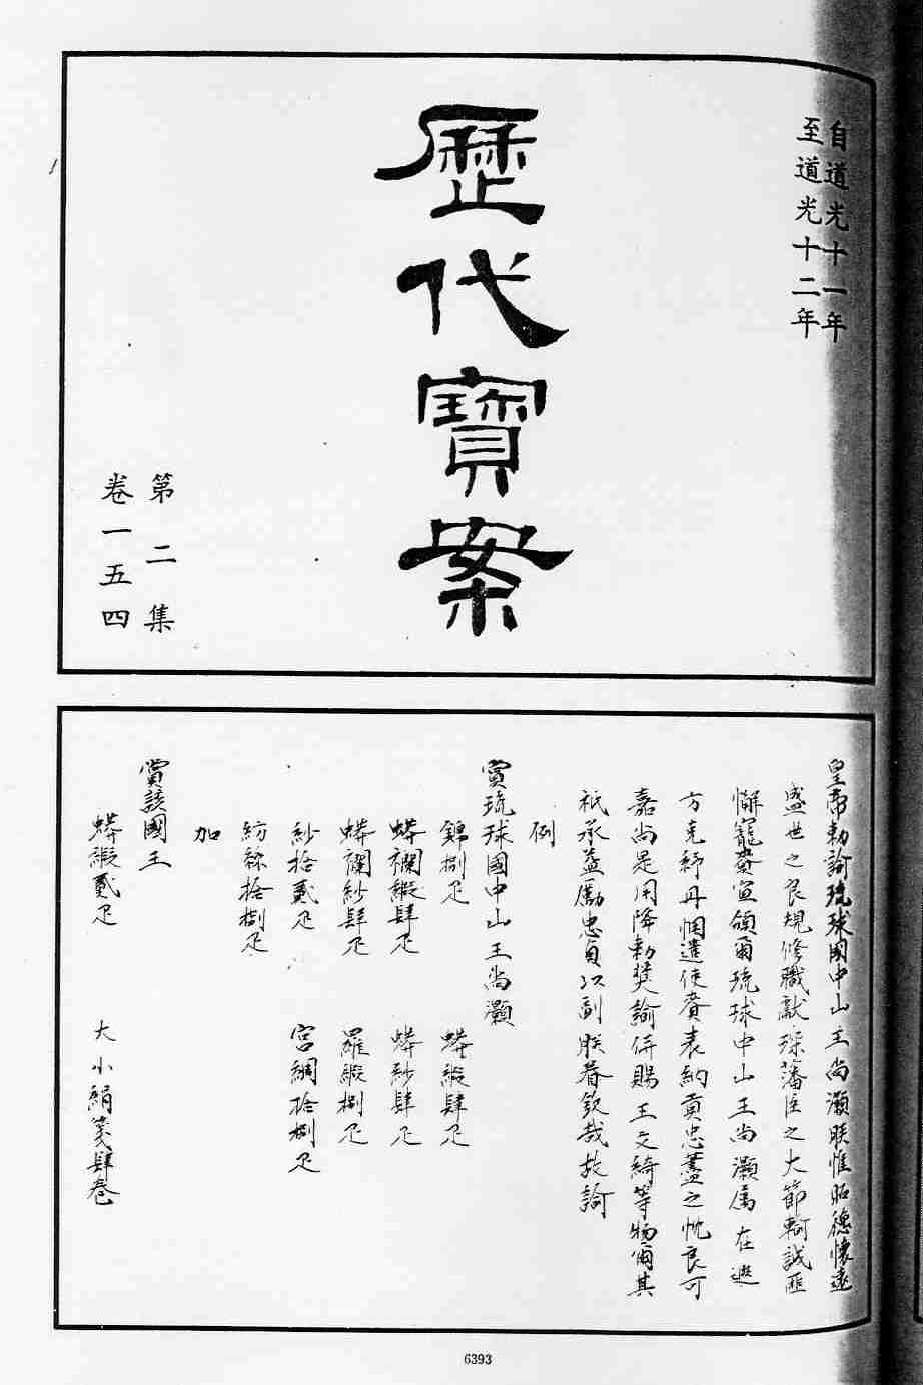 自道光十一年
至道光十二年
歷代寶案
第二集
卷一五四
皇帝勅諭琉球國中山王尚灝朕惟昭德懷遠
盛世之良規修職獻琛藩臣之大節輸誠匪
懈寵賚宣頒爾琉球中山王尚灝属在遐
方克紓丹悃遣使賫表納貢忠藎之忱良可
嘉尚是用降勅奬諭併賜王文綺等物爾其
祗承益勵忠貞以副朕眷欽哉故諭
例
賞琉球國中山王尚灝
錦捌疋 蟒緞肆疋
蟒襴緞肆疋 蟒紗肆疋
蟒襴紗肆疋 羅緞捌疋
紗拾貳疋 宮綢拾捌疋
紡絲拾捌疋
加
賞該國王
蟒緞貳疋 大小絹箋肆卷
6393